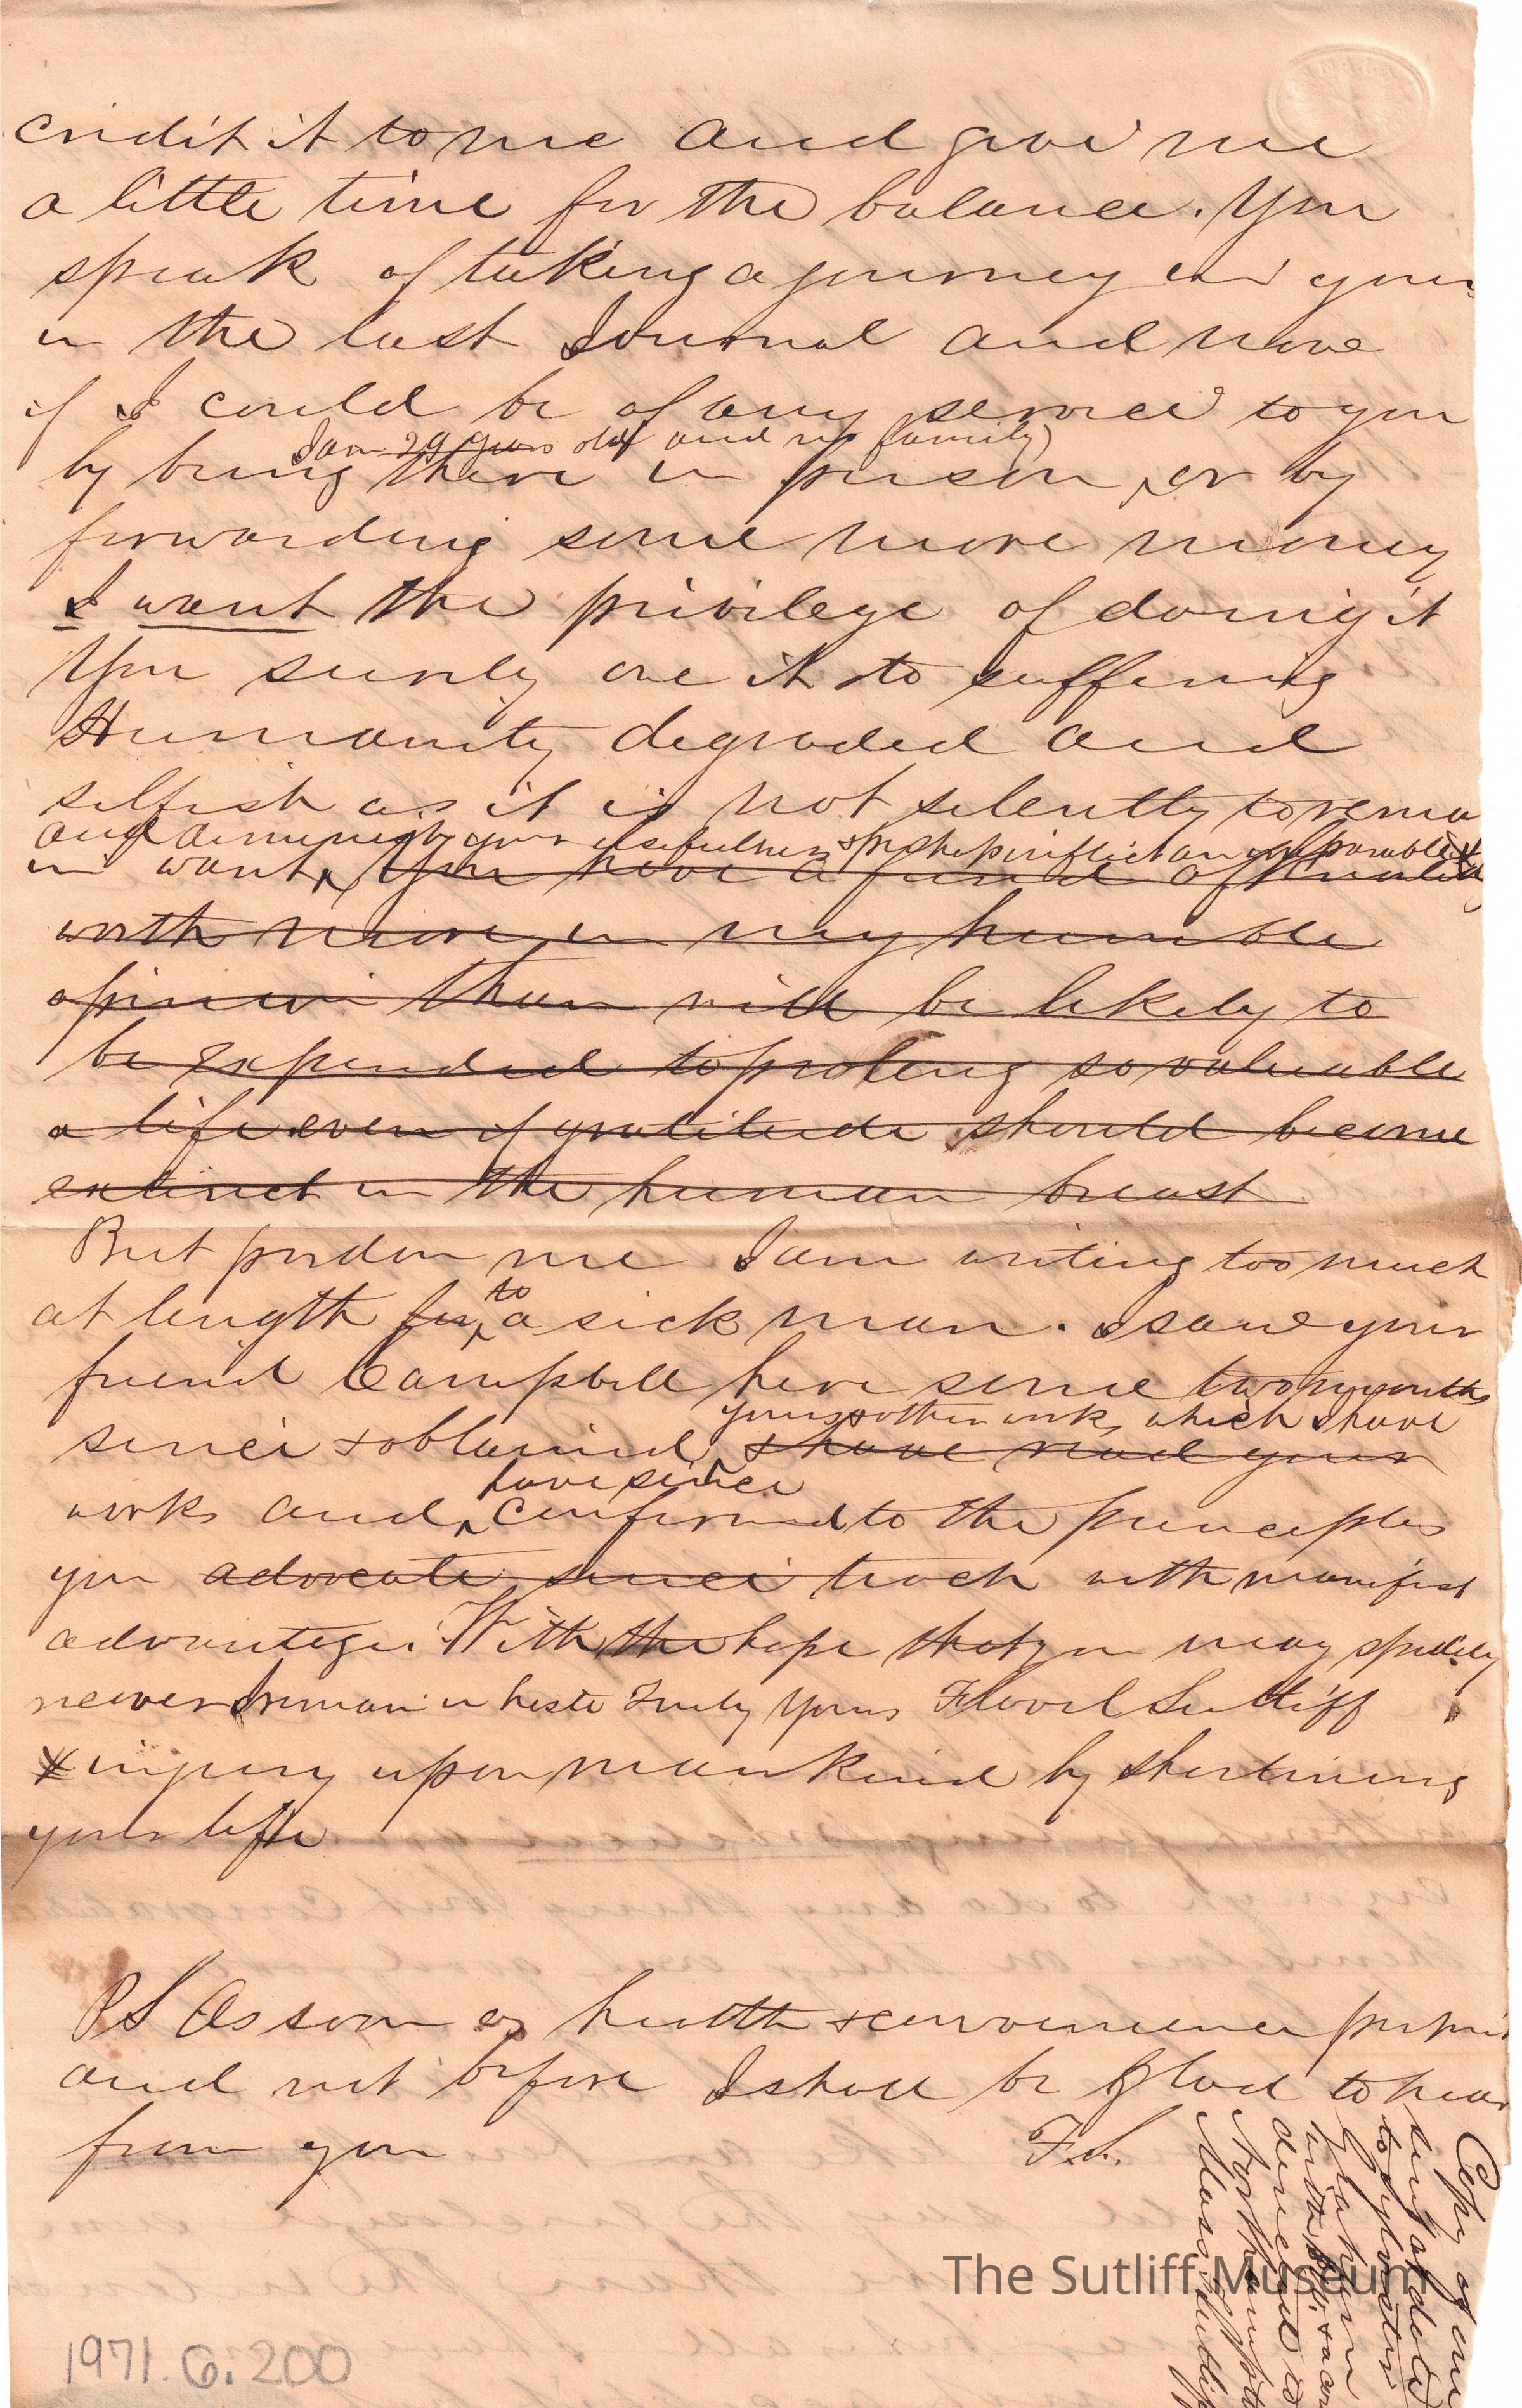 credit it to me and give me
a little time for the balance. You
speak of taking a journey in your
in the last Journal and now
if I could be of any service to you
I am 29 years old and no family)
by being there in person, or by
forwarding some more money
I want the privilege of doing it
You surely owe it to suffering
Humanity degraded and
selfish as it is not silently to rema
and diminish your usefulness & perhaps inflict an irreparable X
in want, You have a fund of
worth more in my humble
opinion than will be likely to
be expended to prolong so valuable
a life even if gratitude should become
extinct in the human breast
But pardon me I am writing too much
at length for to a sick man. I saw your
friend Campbell here some two months
yours & other works, which I have
since & obtained & have read your
have since
works and conformed to the principles
you advocate since teach with manifest
advantage. With the hope that you may speedily
recover I remain in haste Truly Yours Flavel Sutliff
X injury upon mankind by shortening
your life
PS As soon as health & convenience permit
and not before I shall be glad to hear
from you
F.S.
Copy of
sent
to Sylvester
Graham
with
directed to
Northampton
Mass
The Sutliff Museum
1971.6.200